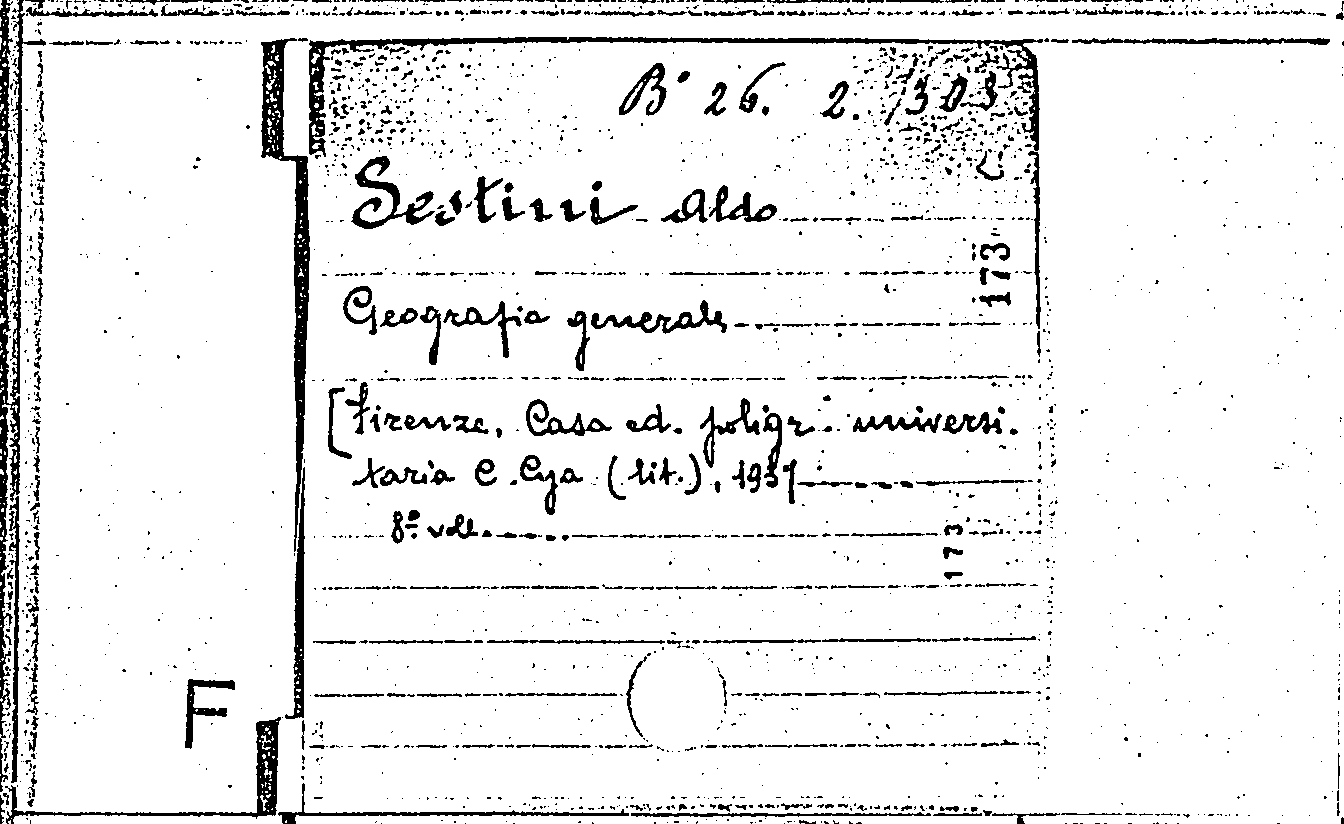 B° 26. 2. /303
Sestini Aldo
173
Geografia generale
[Firenze, Casa ed. poligr. universi.
taria C. Cya (lit.), 1937
8º voll.
173
F